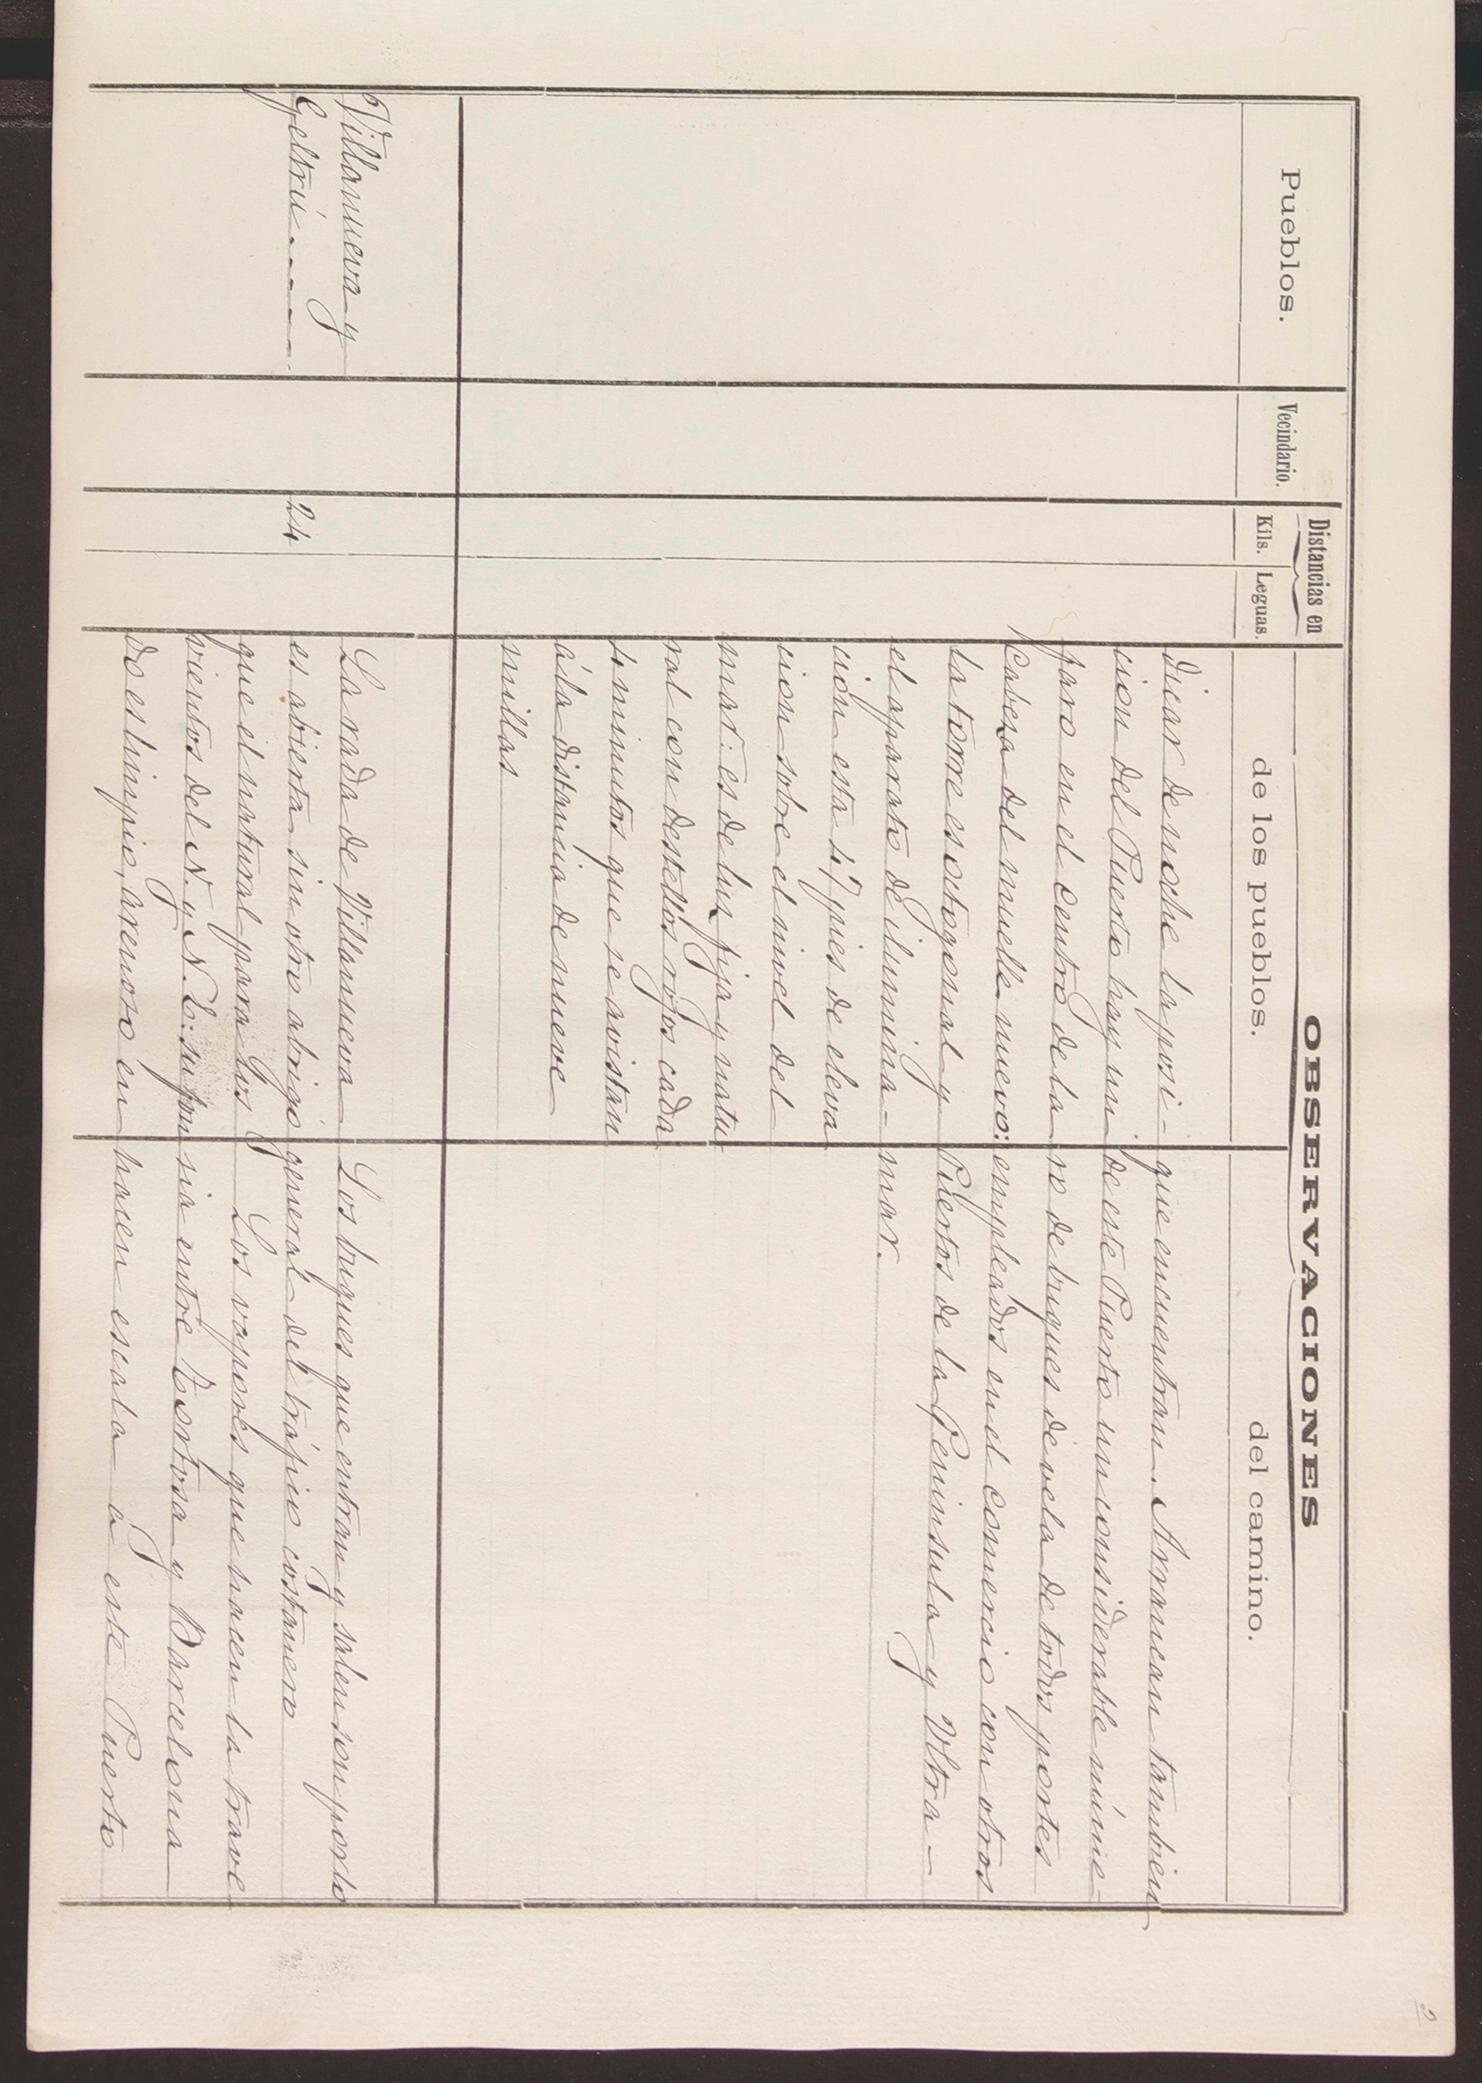 OBSERVACIONES
Pueblos.
Vecindario.
Distancias en
Kils. Leguas.
de los pueblos.
del camino.
dicar de noche la posi-
cion del Puerto hay un
faro en el centro de la
Cabeza del muelle nuevo:
la torre es octogonal y
el aparato de ilumina-
ción esta 47 pies de eleva
cion sobre el nivel del
mar: es de luz fija y natu
ral con destellos rojos cada
4 minutos que se avistan
á la distancia de nueve
millas
que encuentran. Arrancan tambien
de este Puerto un considerable núme-
ro de buques de vela de todos portes
empleados en el comercio con otros
Puertos de la Peninsula y Ultra-
mar.
Villanueva y
Geltrú
24
La rada de Villanueva
es abierta sin otro abrigo
que el natural para los
vientos del N. y N.E: su fon
do es limpio, arenoso en
Los buques que entran y salen son por lo
general del tráfico costanero
Los vapores que hacen la trave
sia entre Tortosa y Barcelona
hacen escala á este Puerto
2